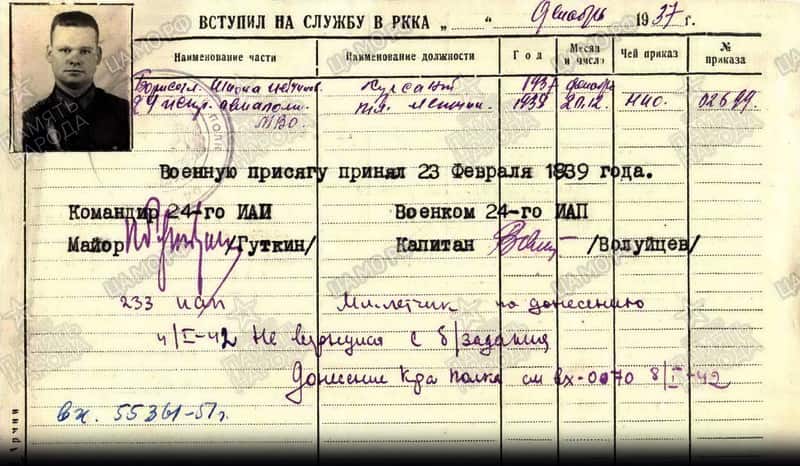 ВСТУПИЛ НА СЛУЖБУ В РККА „ “ Декабрь 1937 г.
Наименование части Наименование должности Год Месяц и число Чей приказ № приказа
Борисогл. Школа летчиков Курсант 1937 декабрь
24 истр. авиаполк мл. летчик 1938 20.12. НКО 02699
МВО
Военную присягу принял 23 Февраля 1839 года.
Командир 24-го ИАП Военком 24-го ИАП
Майор /Гуткин/ Капитан /Волуйцев/
233 иап Мл. летчик по донесению
4/I-42 Не вернулся с б/задания
Донесение К-ра полка вх-0070 8/I-42
вх. 55361-51г.
ПАМЯТЬ НАРОДА
ЦАМО.РФ